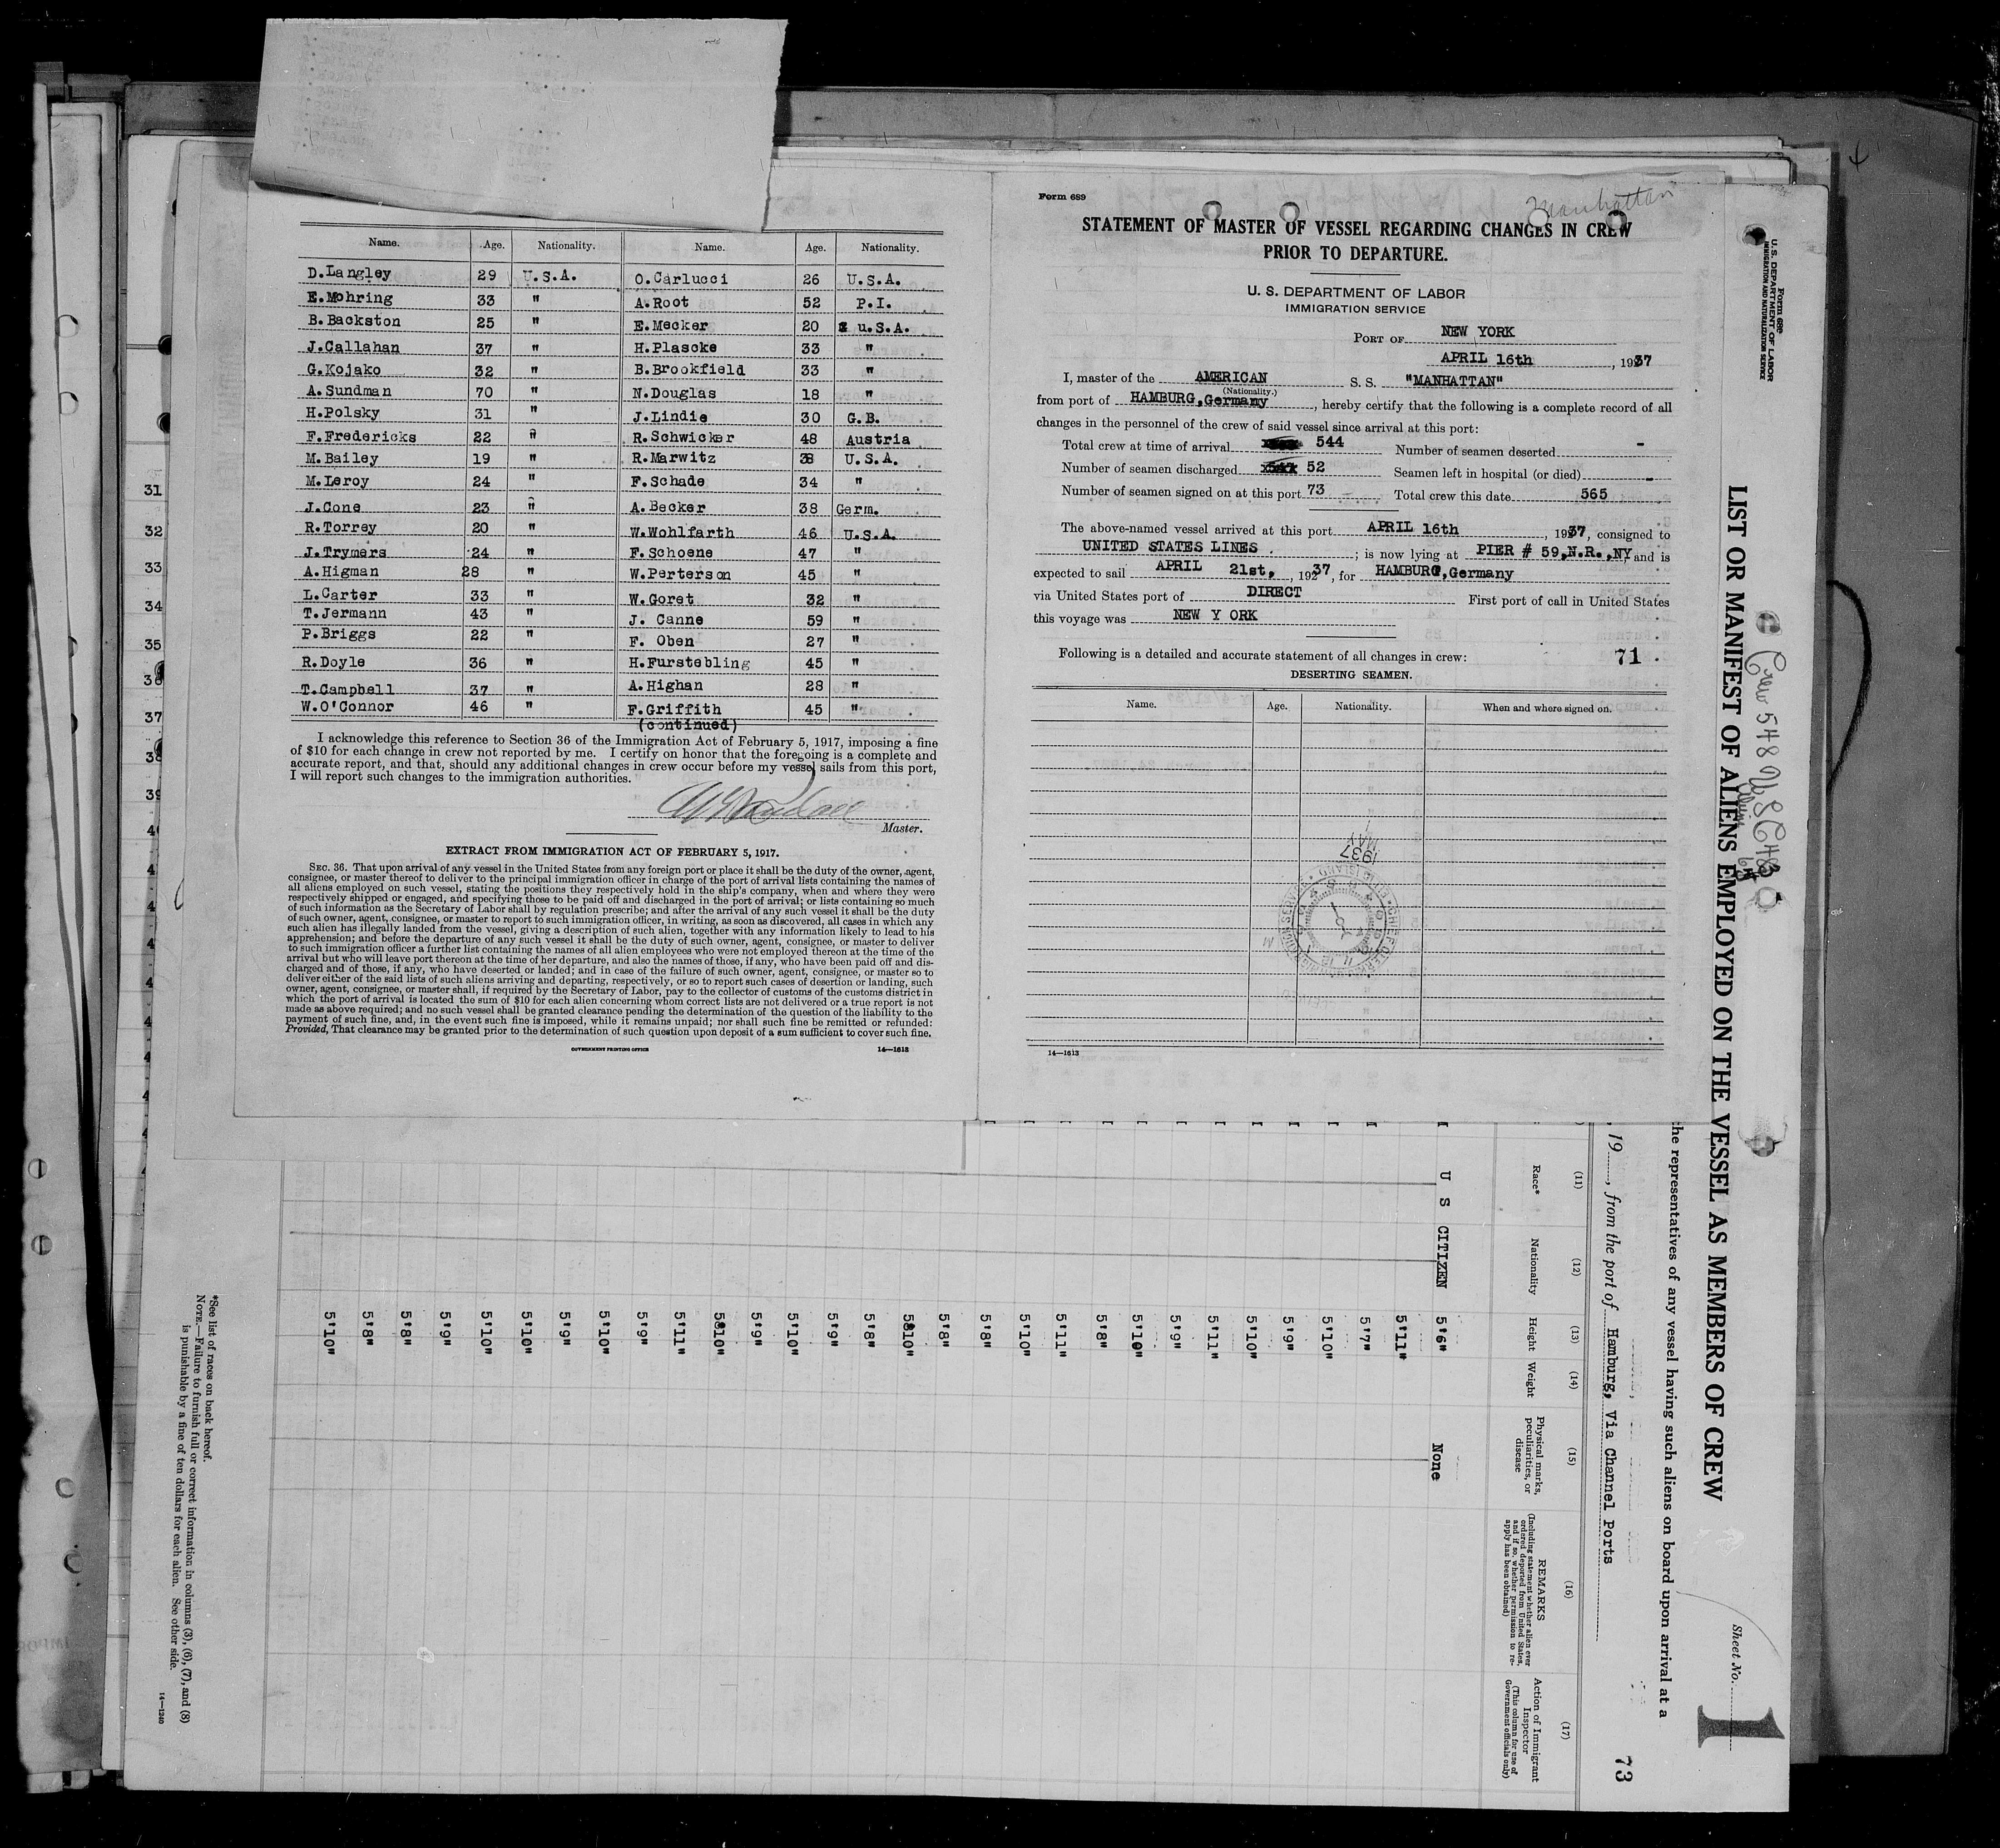 Name. Age. Nationality. Name. Age. Nationality.
D.Langley 29 U.S.A. O.Carlucci 26 U.S.A.
E.Mohring 33 " A.Root 52 P.I.
B.Backston 25 " E.Mecker 20 u.S.A.
J.Callahan 37 " H.Plascke 33 "
G.Kojako 32 " B.Brookfield 33 "
A.Sundman 70 " N.Douglas 18 "
H.Polsky 31 " J.Lindie 30 G.B.
F.Fredericks 22 " R.Schwicker 48 Austria
M.Bailey 19 " R.Marwitz 38 U.S.A.
M.Leroy 24 " F.Schade 34 "
J.Cone 23 " A.Becker 38 Germ.
R.Torrey 20 " W.Wohlfarth 46 U.S.A.
J.Trymers 24 " F.Schoene 47 "
A.Higman 28 " W.Perterson 45 "
L.Carter 33 " W.Goret 32 "
T.Jermann 43 " J. Canne 59 "
P.Briggs 22 " F. Oben 27 "
R.Doyle 36 " H.Furstebling 45 "
T.Campbell 37 " A.Highan 28 "
W.O'Connor 46 " F.Griffith 45 "
(continued)
I acknowledge this reference to Section 36 of the Immigration Act of February 5, 1917, imposing a fine
of $10 for each change in crew not reported by me. I certify on honor that the foregoing is a complete and
accurate report, and that, should any additional changes in crew occur before my vessel sails from this port,
I will report such changes to the immigration authorities.
Master.
EXTRACT FROM IMMIGRATION ACT OF FEBRUARY 5, 1917.
SEC. 36. That upon arrival of any vessel in the United States from any foreign port or place it shall be the duty of the owner, agent,
consignee, or master thereof to deliver to the principal immigration officer in charge of the port of arrival lists containing the names of
all aliens employed on such vessel, stating the positions they respectively hold in the ship's company, when and where they were
respectively shipped or engaged, and specifying those to be paid off and discharged in the port of arrival; or lists containing so much
of such information as the Secretary of Labor shall by regulation prescribe; and after the arrival of any such vessel it shall be the duty
of such owner, agent, consignee, or master to report to such immigration officer, in writing, as soon as discovered, all cases in which any
such alien has illegally landed from the vessel, giving a description of such alien, together with any information likely to lead to his
apprehension; and before the departure of any such vessel it shall be the duty of such owner, agent, consignee, or master to deliver
to such immigration officer a further list containing the names of all alien employees who were not employed thereon at the time of the
arrival but who will leave port thereon at the time of her departure, and also the names of those, if any, who have been paid off and dis-
charged and of those, if any, who have deserted or landed; and in case of the failure of such owner, agent, consignee, or master so to
deliver either of the said lists of such aliens arriving and departing, respectively, or so to report such cases of desertion or landing, such
owner, agent, consignee, or master shall, if required by the Secretary of Labor, pay to the collector of customs of the customs district in
which the port of arrival is located the sum of $10 for each alien concerning whom correct lists are not delivered or a true report is not
made as above required; and no such vessel shall be granted clearance pending the determination of the question of the liability to the
payment of such fine, and, in the event such fine is imposed, while it remains unpaid; nor shall such fine be remitted or refunded:
Provided, That clearance may be granted prior to the determination of such question upon deposit of a sum sufficient to cover such fine.
GOVERNMENT PRINTING OFFICE 14—1613
31
32
33
34
35
36
37
38
39
Form 689
Manhattan
STATEMENT OF MASTER OF VESSEL REGARDING CHANGES IN CREW
PRIOR TO DEPARTURE.
U. S. DEPARTMENT OF LABOR
IMMIGRATION SERVICE
PORT OF NEW YORK
APRIL 16th, 1937
I, master of the AMERICAN S. S. "MANHATTAN"
(Nationality.)
from port of HAMBURG,Germany, hereby certify that the following is a complete record of all
changes in the personnel of the crew of said vessel since arrival at this port:
Total crew at time of arrival 544 Number of seamen deserted -
Number of seamen discharged 52 Seamen left in hospital (or died) -
Number of seamen signed on at this port 73 Total crew this date 565
The above-named vessel arrived at this port APRIL 16th, 1937, consigned to
UNITED STATES LINES ; is now lying at PIER # 59,N.R.,NY and is
expected to sail APRIL 21st, 1937, for HAMBURG,Germany
via United States port of DIRECT First port of call in United States
this voyage was NEW Y ORK
Following is a detailed and accurate statement of all changes in crew: 71
DESERTING SEAMEN.
Name. Age. Nationality. When and where signed on.
1937
MAY
14—1613
Form 689
U. S. DEPARTMENT OF LABOR
IMMIGRATION AND NATURALIZATION SERVICE
Crew 548
LIST OR MANIFEST OF ALIENS EMPLOYED ON THE VESSEL AS MEMBERS OF CREW
Sheet No. 1
the representatives of any vessel having such aliens on board upon arrival at a
, 19, from the port of Hamburg, Via Channel Ports
73
(11) (12) (13) (14) (15) (16) (17)
Race* Nationality Height Weight Physical marks, peculiarities, or disease
REMARKS
(Including statement whether alien ever ordered deported from United States, and if so, whether permission to re-apply has been obtained)
Action of Immigrant Inspector
(This column for use of Government officials only)
U S CITIZEN 5'6" None
5'11"
5'7"
5'10"
5'9"
5'10"
5'11"
5'9"
5'10"
5'8"
5'11"
5'10"
5'8"
5'8"
5810"
5'8"
5'9"
5'10"
5'9"
5810"
5'11"
5'9"
5'10"
5'9"
5'10"
5'10"
5'9"
5'8"
5'8"
5'10"
*See list of races on back hereof.
NOTE.—Failure to furnish full or correct information in columns (3), (6), (7), and (8)
is punishable by a fine of ten dollars for each alien. See other side.
14—1240